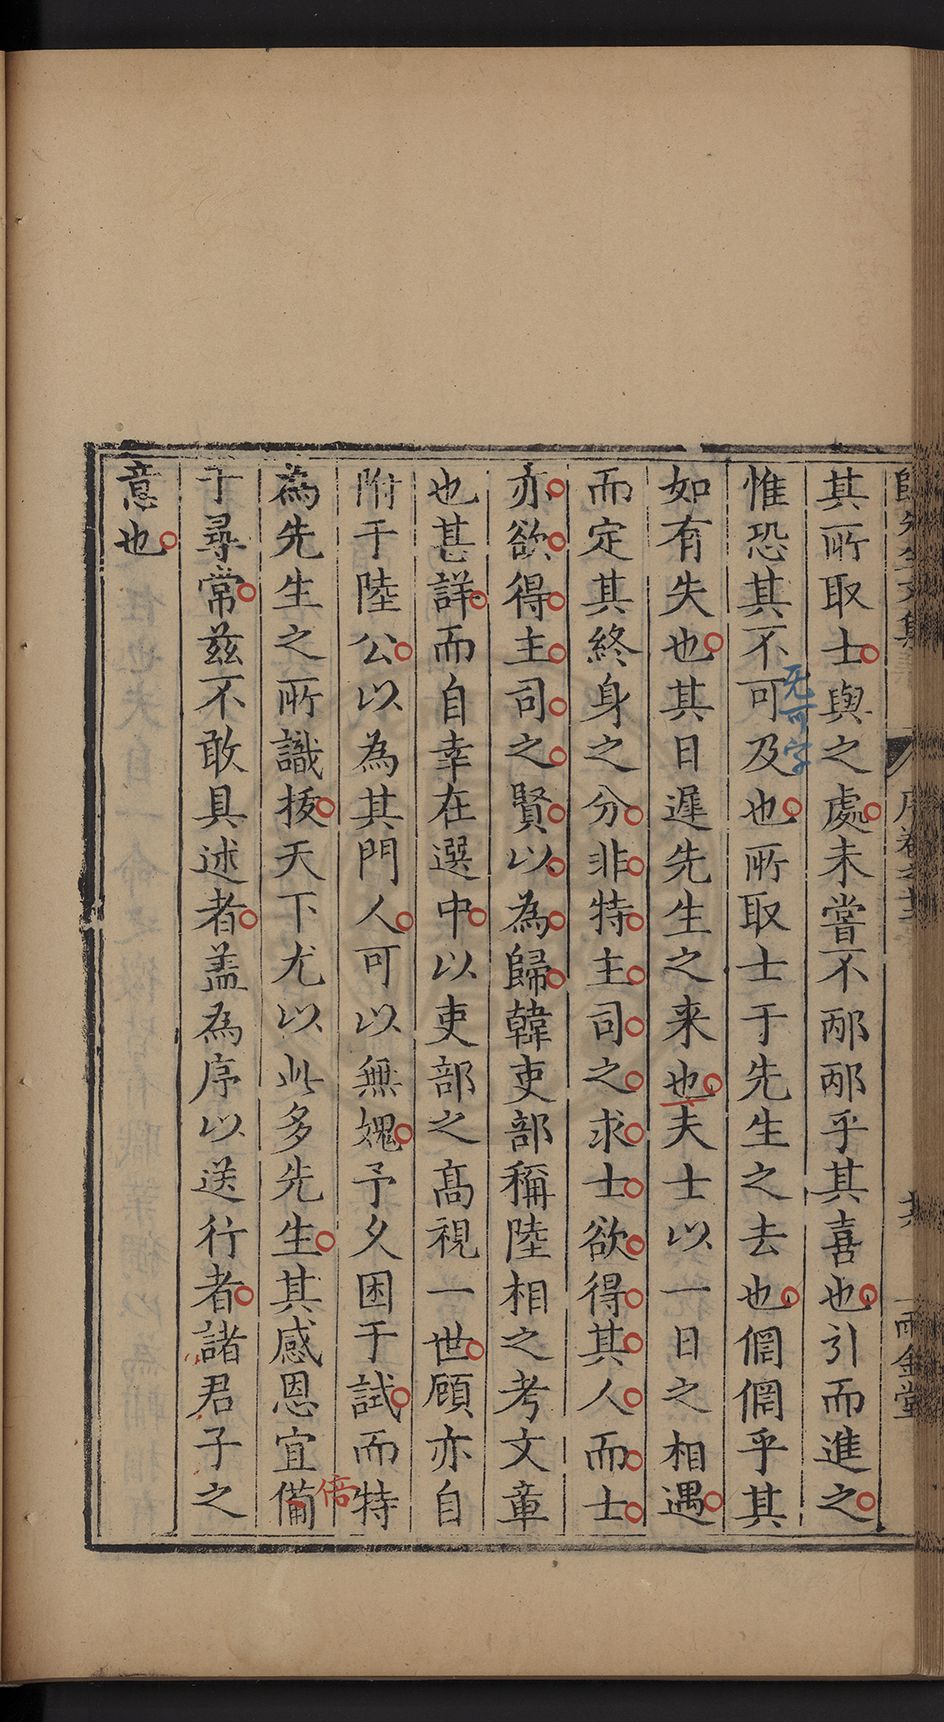 歸先生文集 序卷之 共 雨金堂
其所取士與之處未嘗不邴邴乎其喜也引而進之
惟恐其不可及也所取士于先生之去也惘惘乎其
无可字
如有失也其日遲先生之来也夫士以一日之相遇
而定其終身之分非特主司之求士欲得其人而士
亦欲得主司之賢以為歸韓吏部稱陸相之考文章
也甚詳而自幸在選中以吏部之髙視一世顧亦自
附于陸公以為其門人可以無媿予久困于試而特
倍
為先生之所識拔天下尤以此多先生其感恩宜備
于尋常兹不敢具述者葢為序以送行者諸君子之
意也